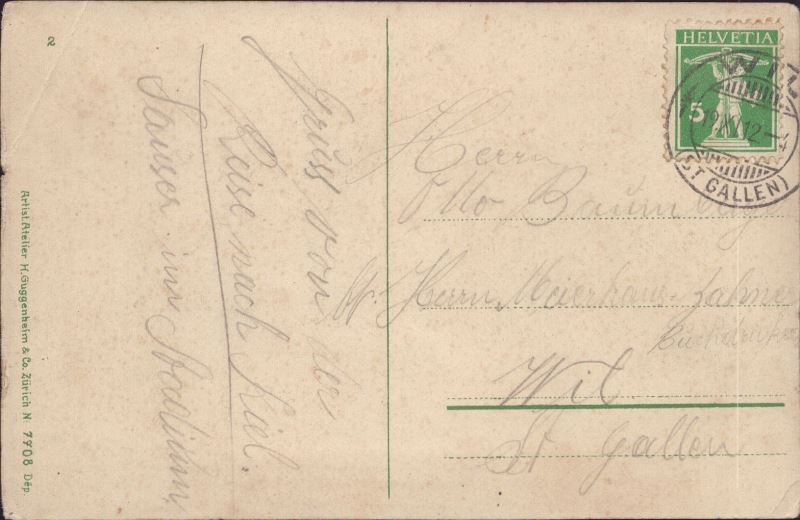 2
Artist. Atelier H. Guggenheim & Co. Zürich No. 7908 Dép.
Gruss von der
Reise nach Kiel.
Sauser im Stadium
HELVETIA
5
WIL
XI.12-4
(ST GALLEN)
Herrn
Otto Baumberger
Herrn Meierhans-Zahner
Wil.
St Gallen